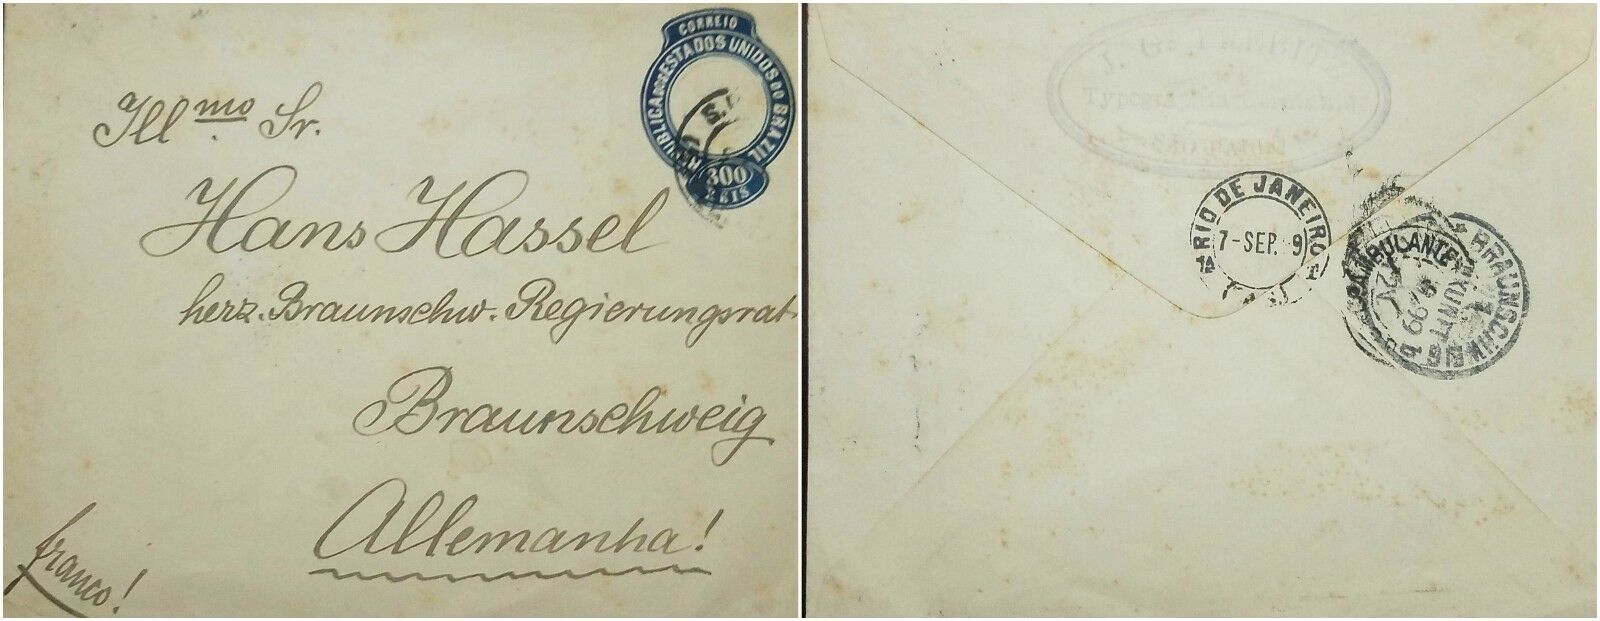 CORREIO
REPUBLICA DOS ESTADOS UNIDOS DO BRAZIL
300
REIS
Ill.mo Sr.
Hans Hassel
herz. Braunschw. Regierungsrat
Braunschweig
Allemanha!
franco!
J. G.
SÃO PAULO
RIO DE JANEIRO
7-SEP. 9
AMBULANTE
99
BRAUNSCHWEIG